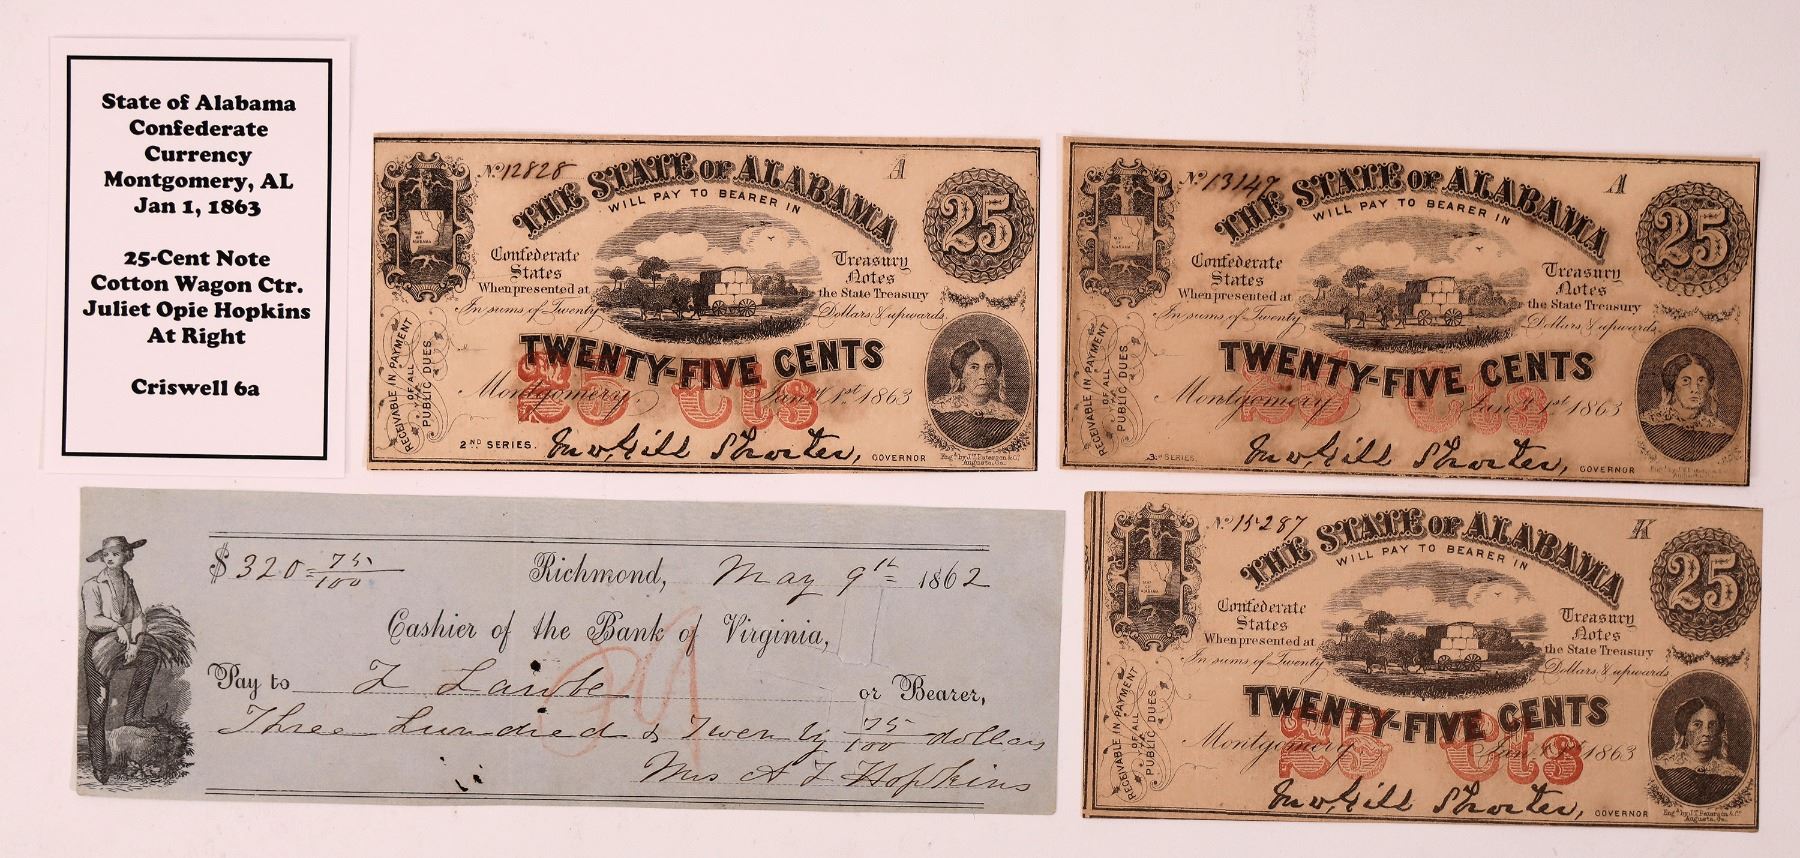 State of Alabama
Confederate
Currency
Montgomery, AL
Jan 1, 1863
25-Cent Note
Cotton Wagon Ctr.
Juliet Opie Hopkins
At Right
Criswell 6a
No. 12828 A
THE STATE OF ALABAMA
WILL PAY TO BEARER IN
25
MAP OF ALABAMA
Confederate States Treasury Notes
When presented at the State Treasury
In sums of Twenty Dollars & upwards.
RECEIVABLE IN PAYMENT
OF ALL
PUBLIC DUES.
TWENTY-FIVE CENTS
25 Cts
Montgomery, Jany. 1st 1863
2ND SERIES. Jno. Gill Shorter, GOVERNOR
Engd. by J.T. Paterson & Co.
Augusta, Ga.
No. 13147 A
THE STATE OF ALABAMA
WILL PAY TO BEARER IN
25
Confederate States Treasury Notes
When presented at the State Treasury
In sums of Twenty Dollars & upwards.
RECEIVABLE IN PAYMENT
OF ALL
PUBLIC DUES.
TWENTY-FIVE CENTS
25 Cts
Montgomery, Jany. 1st 1863
3D SERIES. Jno. Gill Shorter, GOVERNOR
$ 320 75/100 Richmond, May 9th 1862
Cashier of the Bank of Virginia,
Pay to or Bearer,
Three Hundred & Twenty 75/100 dollars
Mrs A F Hopkins
No. 15287 K
THE STATE OF ALABAMA
WILL PAY TO BEARER IN
25
Confederate States Treasury Notes
When presented at the State Treasury
In sums of Twenty Dollars & upwards
RECEIVABLE IN PAYMENT
OF ALL
PUBLIC DUES.
TWENTY-FIVE CENTS
25 Cts
Montgomery, Jany. 1st 1863
Jno. Gill Shorter, GOVERNOR
Engd. by J.T. Paterson & Co.
Augusta, Ga.